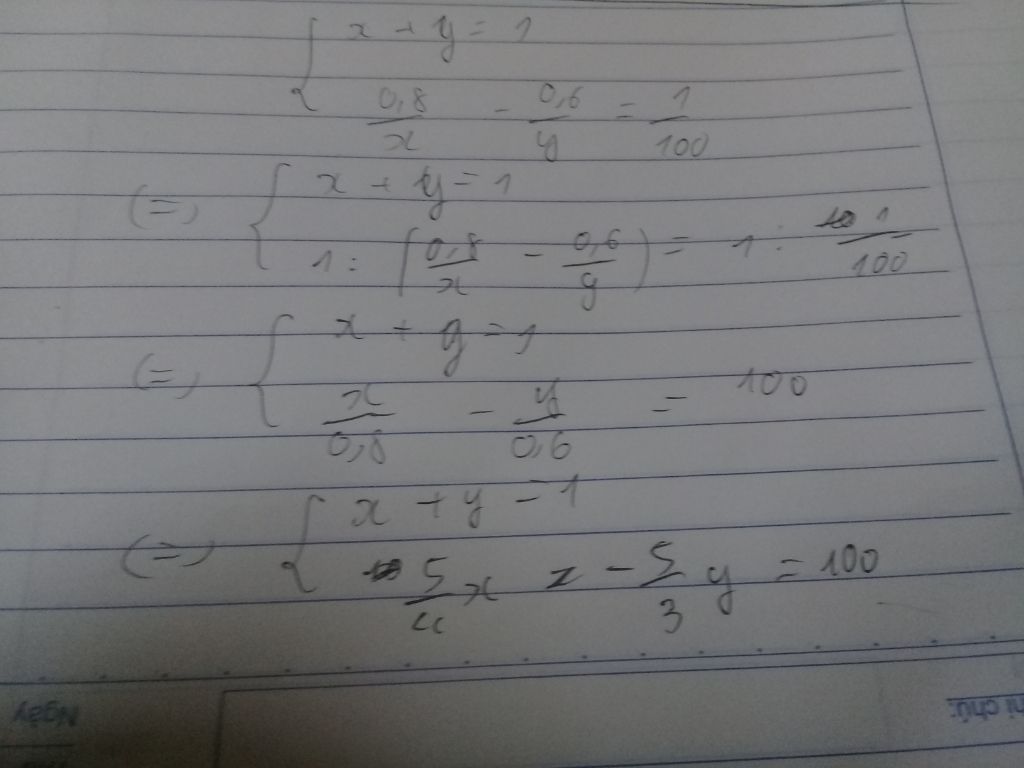 { x + y = 1
0,8/x - 0,6/y = 1/100
(=) { x + y = 1
1 : (0,8/x - 0,6/y) = 1 : 1/100
(=) { x + y = 1
x/0,8 - y/0,6 = 100
(=) { x + y = 1
5/4 x - 5/3 y = 100
Ngày
hi chú: